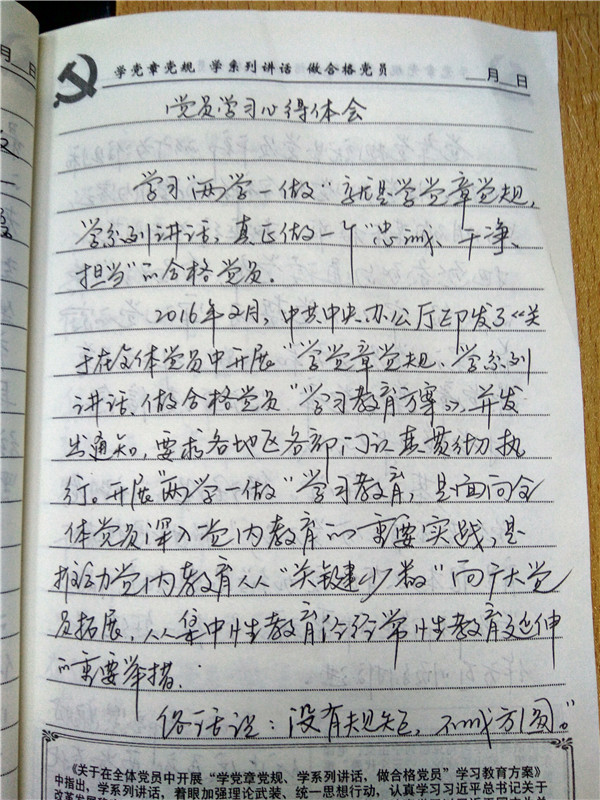 学党章党规 学系列讲话 做合格党员
月 日
党员学习心得体会
学习"两学一做"就是学党章党规,
学系列讲话、真正做一个"忠诚、干净、
担当"的合格党员.
2016年2月,中共中央办公厅印发了《关
于在全体党员中开展"学党章党规、学系列
讲话、做合格党员"学习教育方案》,并发
出通知,要求各地区各部门认真贯彻执
行。开展"两学一做"学习教育,是面向全
体党员深入党内教育的重要实践,是
推动党内教育从"关键少数"向广大党
员拓展,从集中性教育给经常性教育延伸
的重要举措.
俗话说:没有规矩,不成方圆。"
《关于在全体党员中开展"学党章党规、学系列讲话,做合格党员"学习教育方案》
中指出,学系列讲话,着眼加强理论武装、统一思想行动,认真学习习近平总书记关于